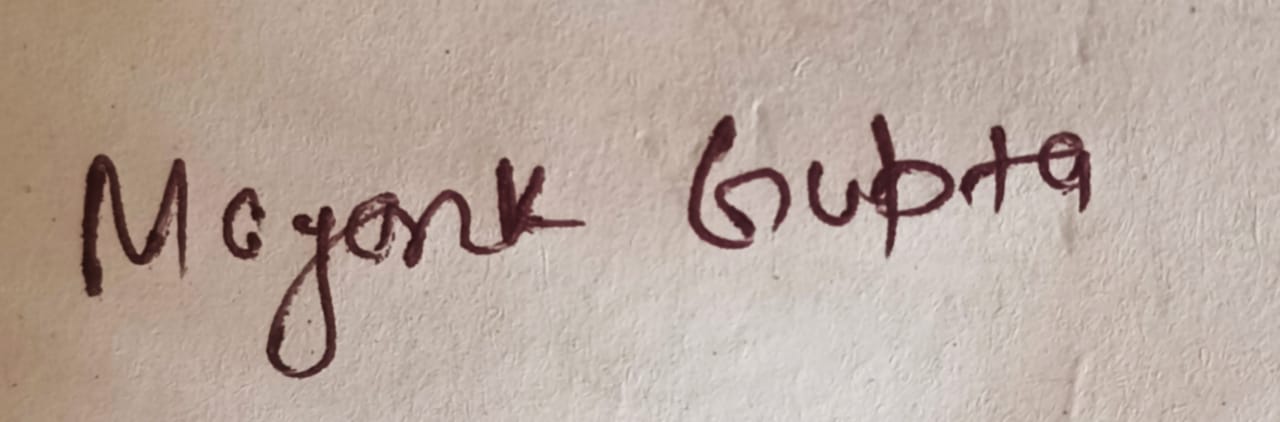 Mayank Gupta